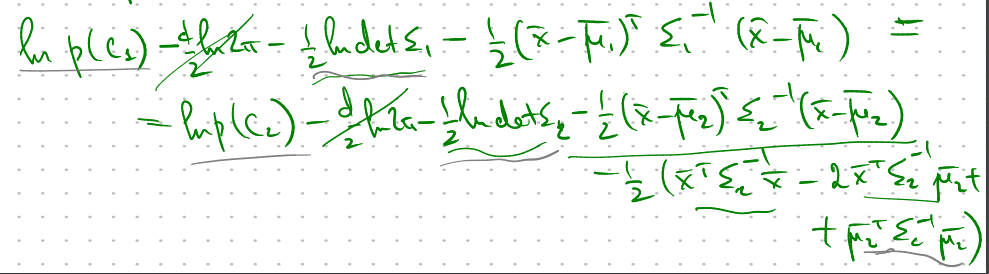 ln p(c₁) - d/2 ln 2π - 1/2 ln det Σ₁ - 1/2 (x̄ - μ̄₁)ᵀ Σ₁⁻¹ (x̄ - μ̄₁) =
= ln p(c₂) - d/2 ln 2π - 1/2 ln det Σ₂ - 1/2 (x̄ - μ̄₂)ᵀ Σ₂⁻¹ (x̄ - μ̄₂)
- 1/2 (x̄ᵀ Σ₂⁻¹ x̄ - 2 x̄ᵀ Σ₂⁻¹ μ̄₂ +
+ μ̄₂ᵀ Σ₂⁻¹ μ̄₂)